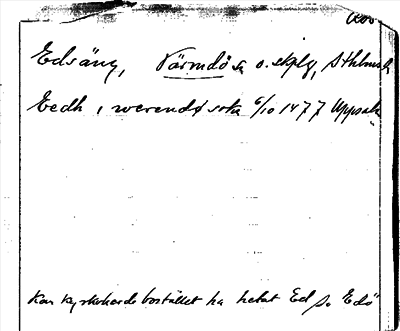 Edsäng, Värmdö sn o. skplg, Sthlms l.
Eedh i werendö sokn 6/10 1477 Uppsala
Kan kyrkoherdebostället ha hetat Ed s. Edö